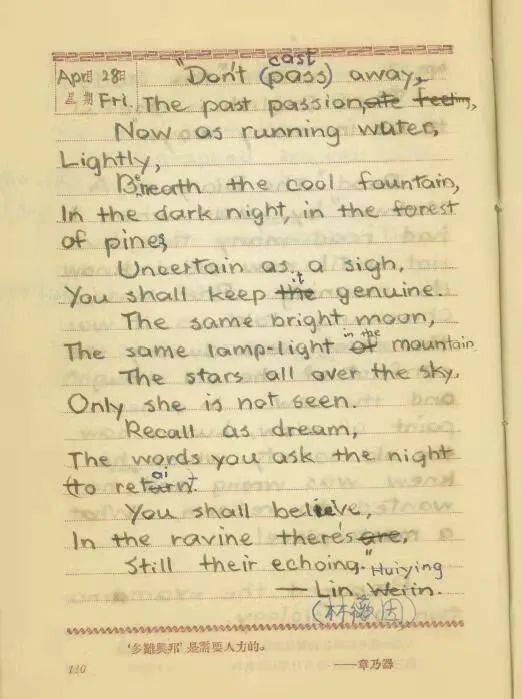 cast
April 28日 "Don't (pass) away,
星期 Fri. The past passion,ate feeling,
Now as running water,
Lightly,
Beneath the cool fountain,
In the dark night, in the forest
of pines,
Uncertain as a sigh,
it
You shall keep the genuine.
The same bright moon,
in the
The same lamp-light of mountain
The stars all over the sky,
Only she is not seen.
Recall as dream,
The words you ask the night
ai
(to return).
You shall believe,
In the ravine there's are,
Still their echoing."
Huiying
— Lin, Weiin.
(林徽因)
'多難興邦'是需要人力的。
——章乃器
110